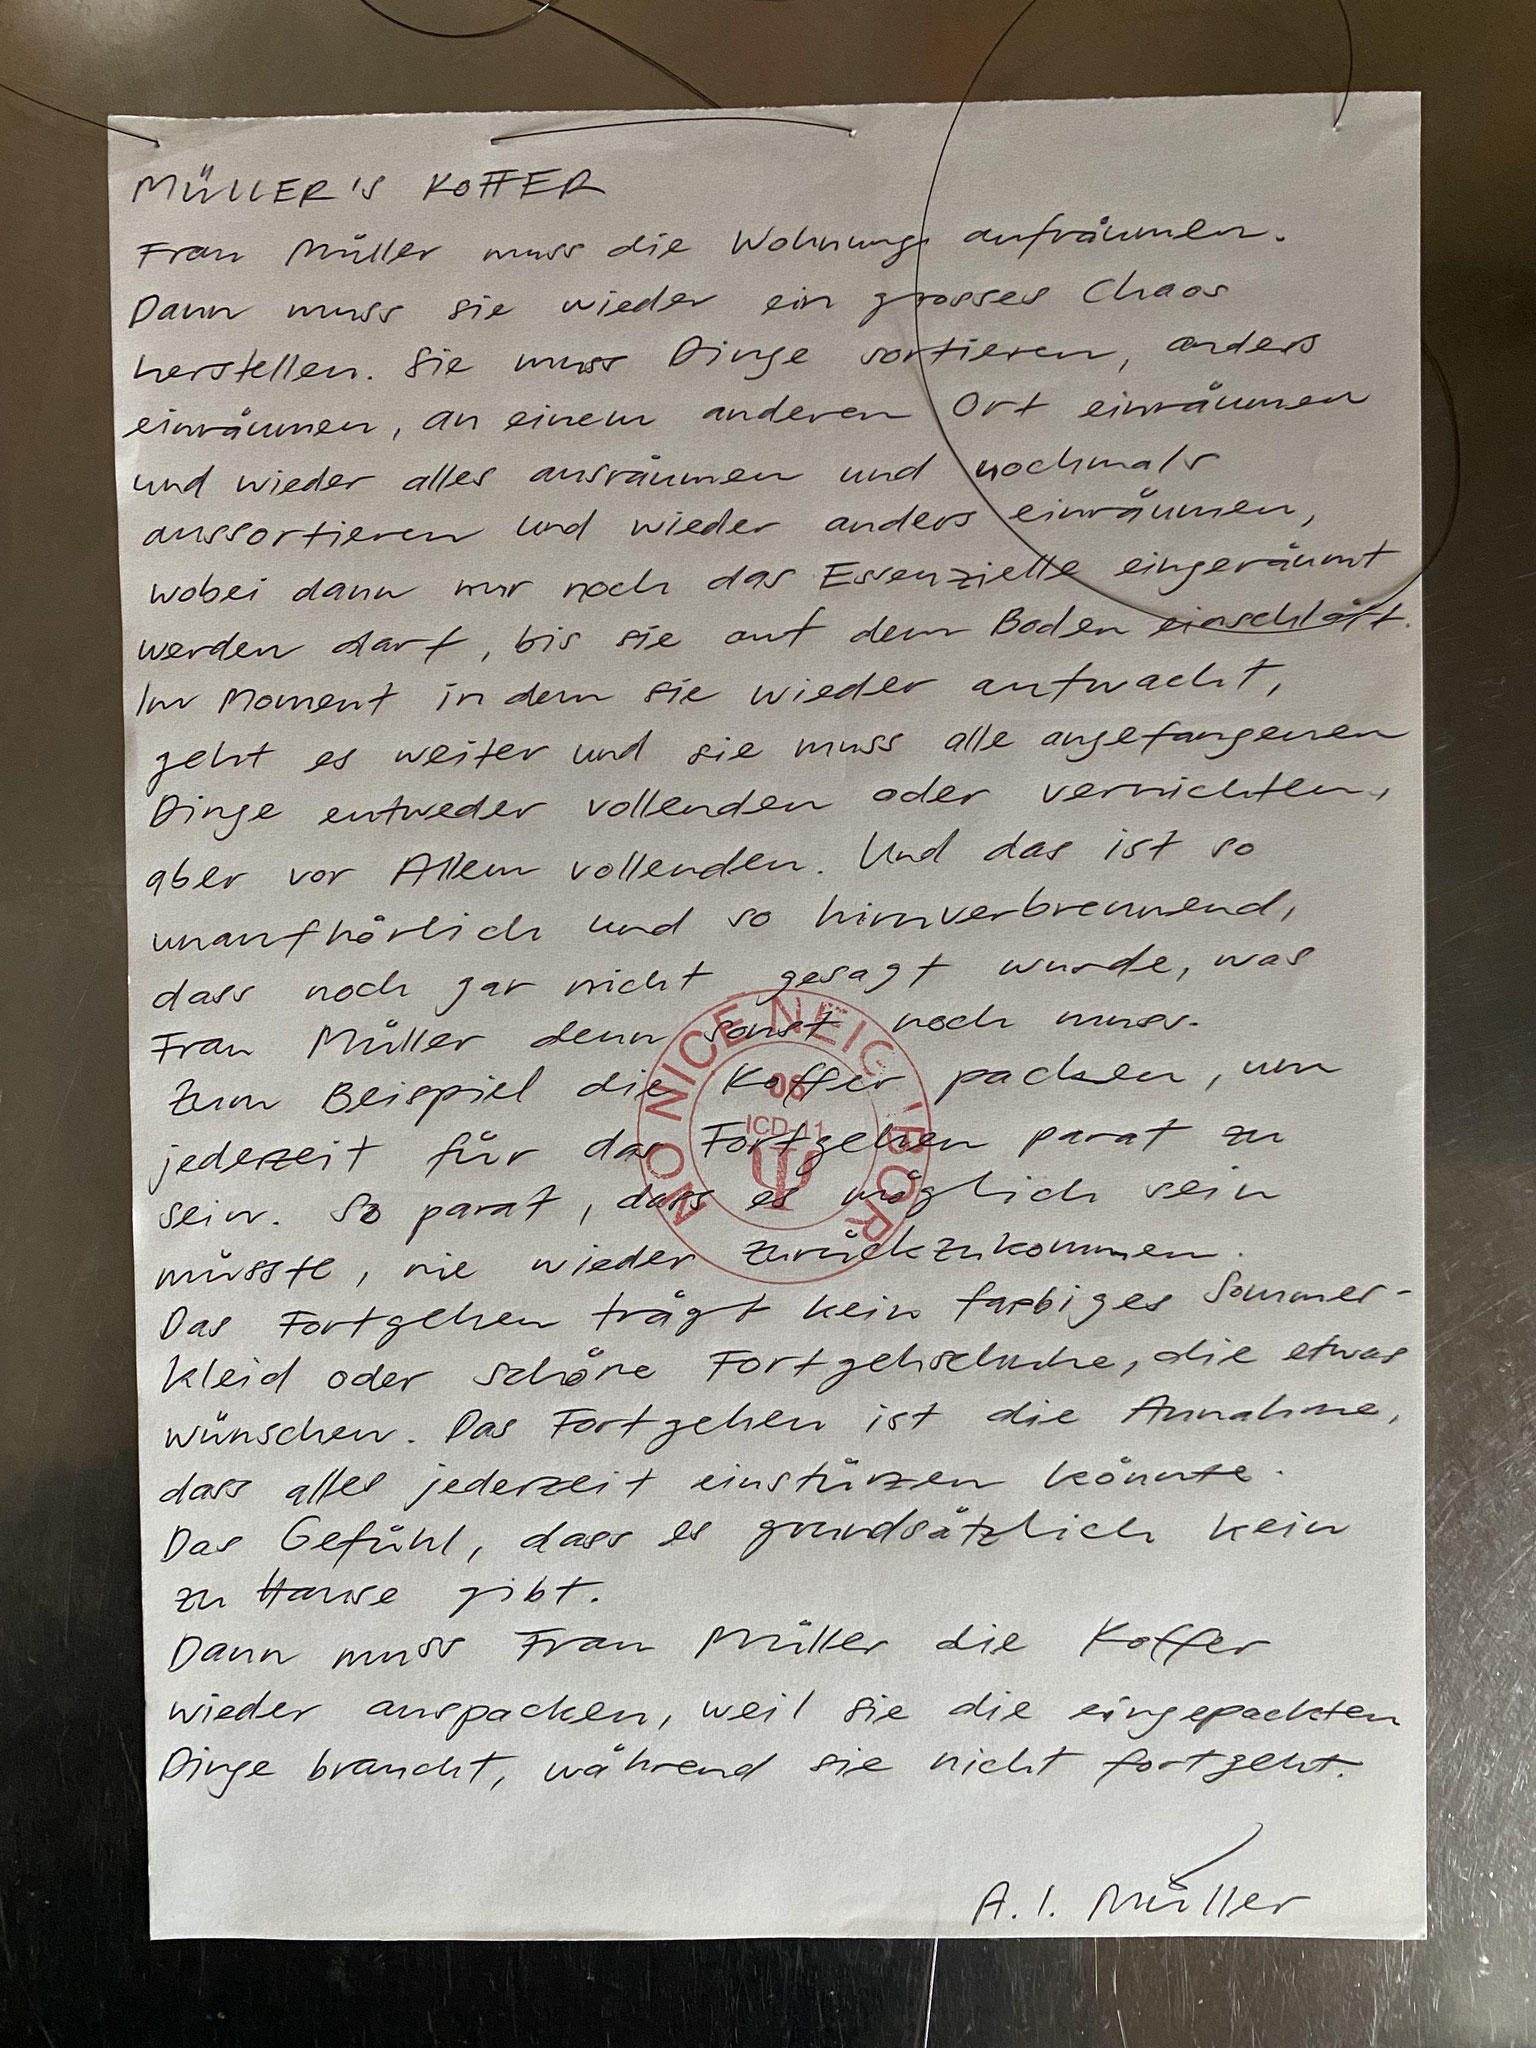 MÜLLER'S KOFFER
Frau Müller muss die Wohnung aufräumen.
Dann muss sie wieder ein grosses Chaos
herstellen. Sie muss Dinge sortieren, anders
einräumen, an einem anderen Ort einräumen
und wieder alles ausräumen und nochmals
aussortieren und wieder anders einräumen,
wobei dann nur noch das Essenzielle eingeräumt
werden darf, bis sie auf dem Boden einschläft.
Im Moment in dem sie wieder aufwacht,
geht es weiter und sie muss alle angefangenen
Dinge entweder vollenden oder vernichten,
aber vor Allem vollenden. Und das ist so
unaufhörlich und so hirnverbrennend,
dass noch gar nicht gesagt wurde, was
Frau Müller denn sonst noch muss.
Zum Beispiel die Koffer packen, um
jederzeit für das Fortgehen parat zu
sein. So parat, dass es möglich sein
müsste, nie wieder zurückzukommen.
Das Fortgehen trägt kein farbiges Sommer-
kleid oder schöne Fortgehschuhe, die etwas
wünschen. Das Fortgehen ist die Annahme,
dass alles jederzeit einstürzen könnte.
Das Gefühl, dass es grundsätzlich kein
zu Hause gibt.
Dann muss Frau Müller die Koffer
wieder auspacken, weil sie die eingepackten
Dinge braucht, während sie nicht fortgeht.
A. I. Müller
NO NICE NEIG 'BOR
06
ICD-11
Ψ